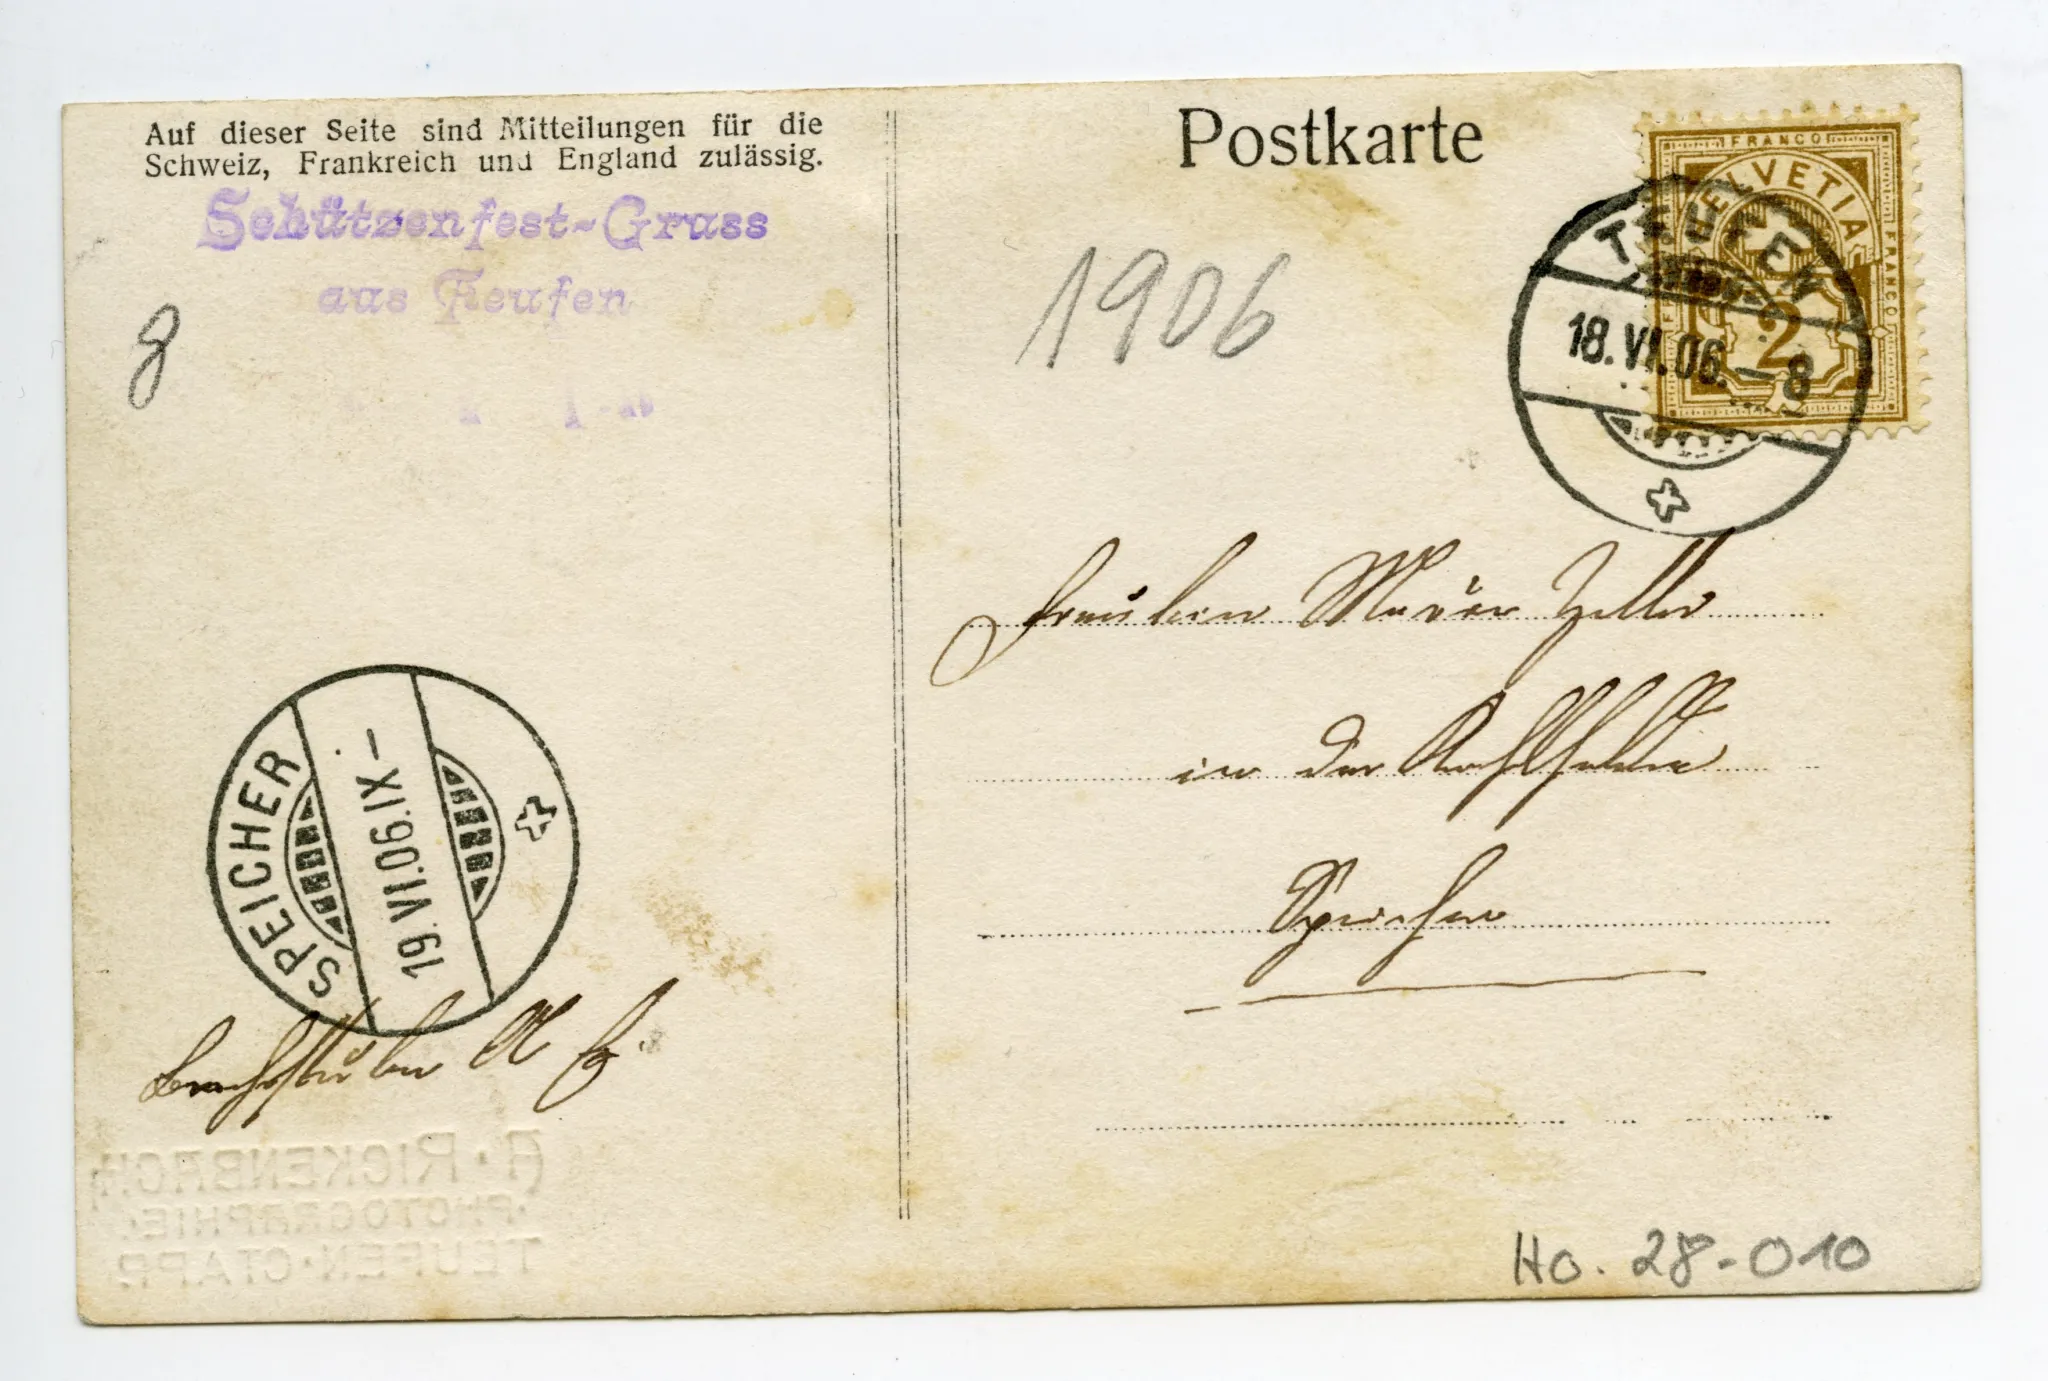 Auf dieser Seite sind Mitteilungen für die
Schweiz, Frankreich und England zulässig.
Schützenfest-Gruss
aus Teufen
8
Postkarte
1906
FRANCO
HELVETIA
FRANCO
2
TEUFEN
18.VI.06.–8
Fräulein Zeller
in der
Speicher
SPEICHER
19.VI.06.IX–
A. RICKENBACH
PHOTOGRAPHIE
TEUFEN·CTAPP.
Ho. 28-010